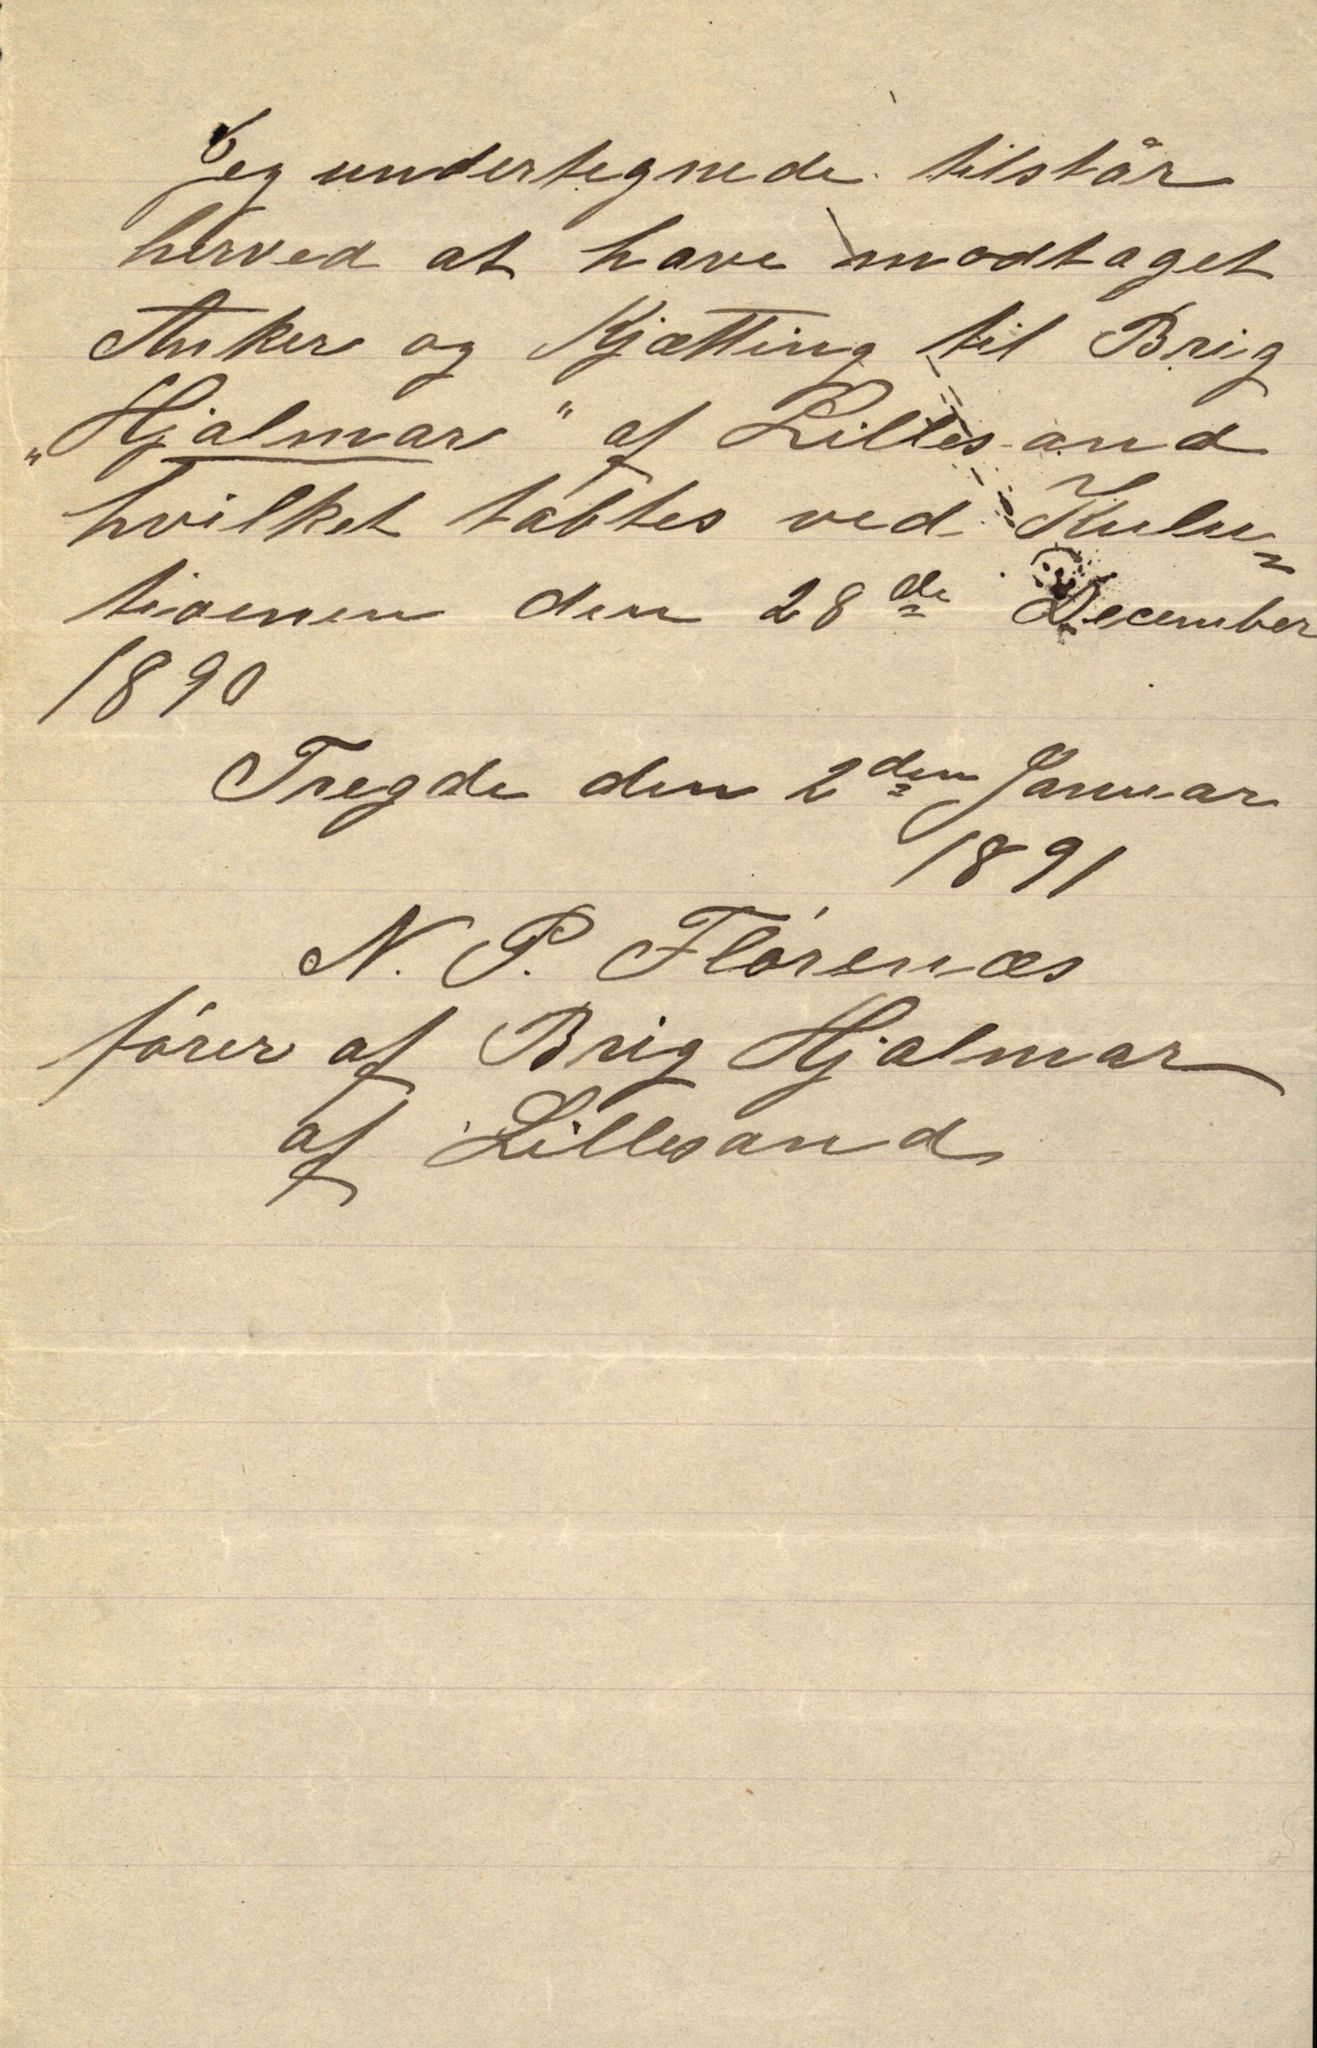 Jeg undertegnede tilstår
herved at have modtaget
Anker og Kjætting til Brig
„Hjalmar“ af Lillesand
hvilket tabtes ved
den 28de December
1890
Tregde den 2den Januar
1891
N. P. Flórenæs
fórer af Brig Hjalmar
af Lillesand